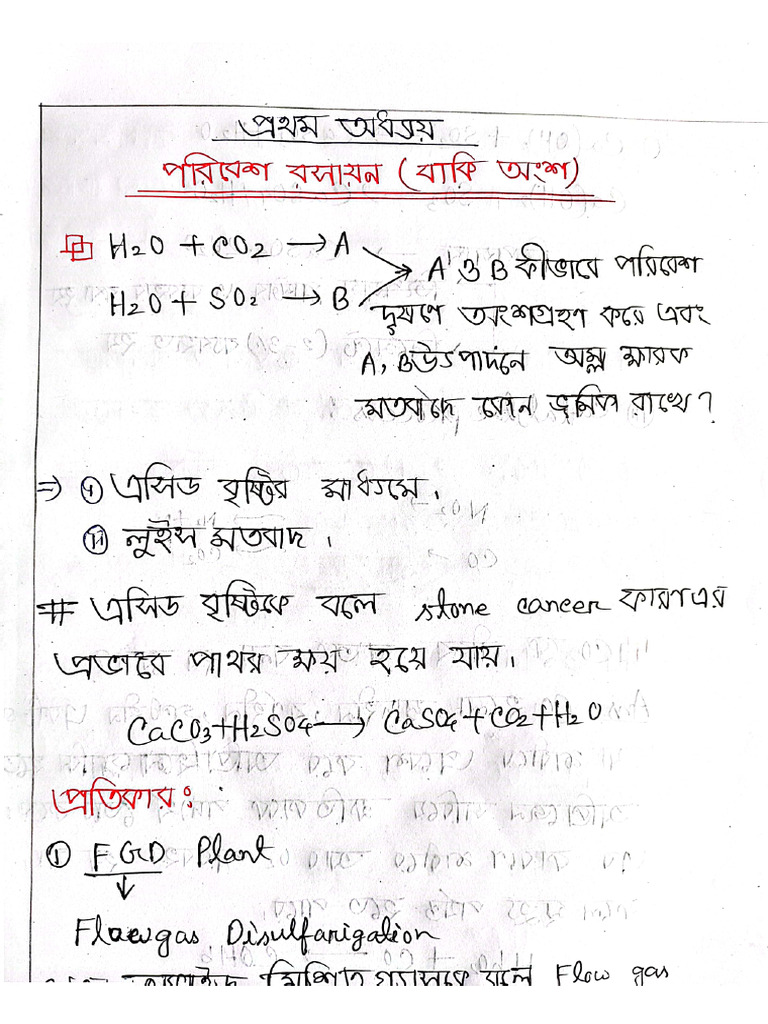 প্রথম অধ্যায়
পরিবেশ রসায়ন (বাকি অংশ)
H2O + CO2 → A
H2O + SO2 → B
A ও B কীভাবে পরিবেশ
দূষণে অংশগ্রহণ করে এবং
A, B উৎপাদনে অম্ল ক্ষারক
মতবাদে কোন ভূমিকা রাখে?
⇒ (i) এসিড বৃষ্টির মাধ্যমে।
(ii) লুইস মতবাদ।
# এসিড বৃষ্টিকে বলে stone cancer কারণ এর
প্রভাবে পাথর ক্ষয় হয়ে যায়।
CaCO3+H2SO4 → CaSO4+CO2+H2O
প্রতিকার:
(i) FGD Plant
↓
Flawgas Disulfanigation
মিশ্রিত গ্যাসকে বলে Flow gas